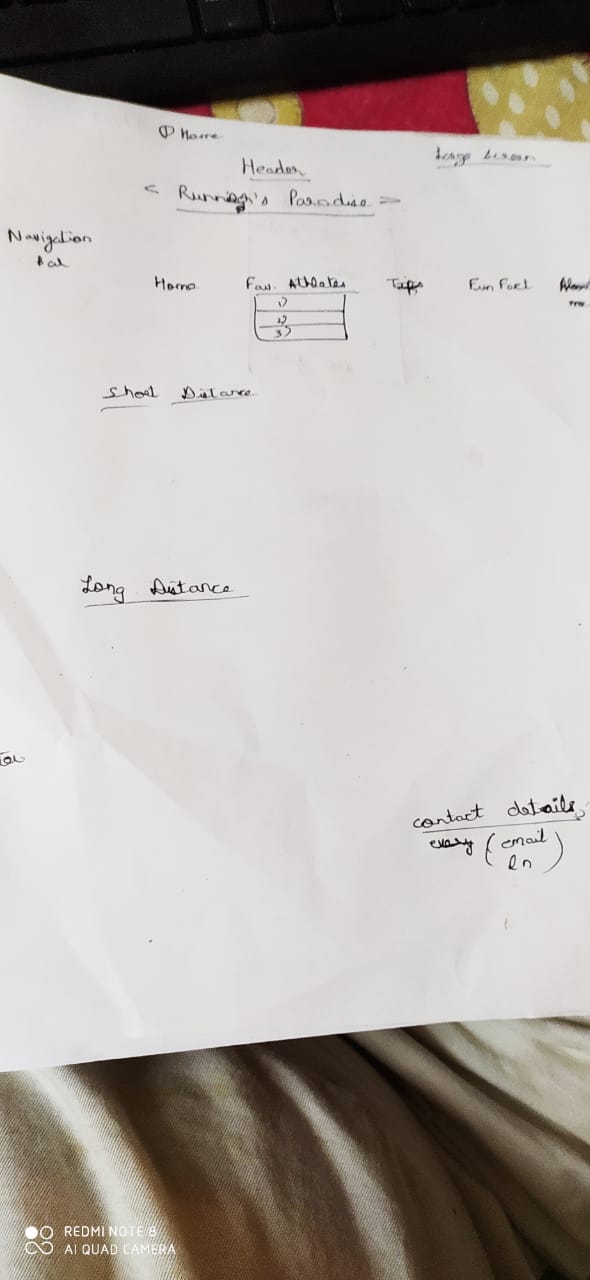 ① Home
Large Screen
Header
< Running's Paradise >
Navigation
Bar
Home Fav. Athletes Tips Fun Fact
me
1)
2)
3)
Short Distance
Long Distance
contact details
(email
ln)
REDMI NOTE 8
AI QUAD CAMERA